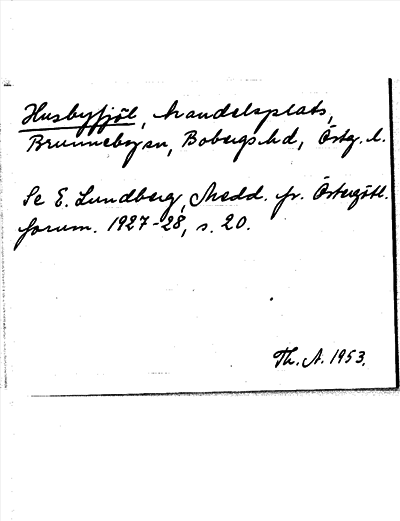 Husbyfjöl, handelsplats,
Brunnebysn, Bobergs hd, Östg. l.
Se E. Lundberg, Medd. fr. Östergötl.
fornm. 1927-28, s. 20.
Th. A. 1953.